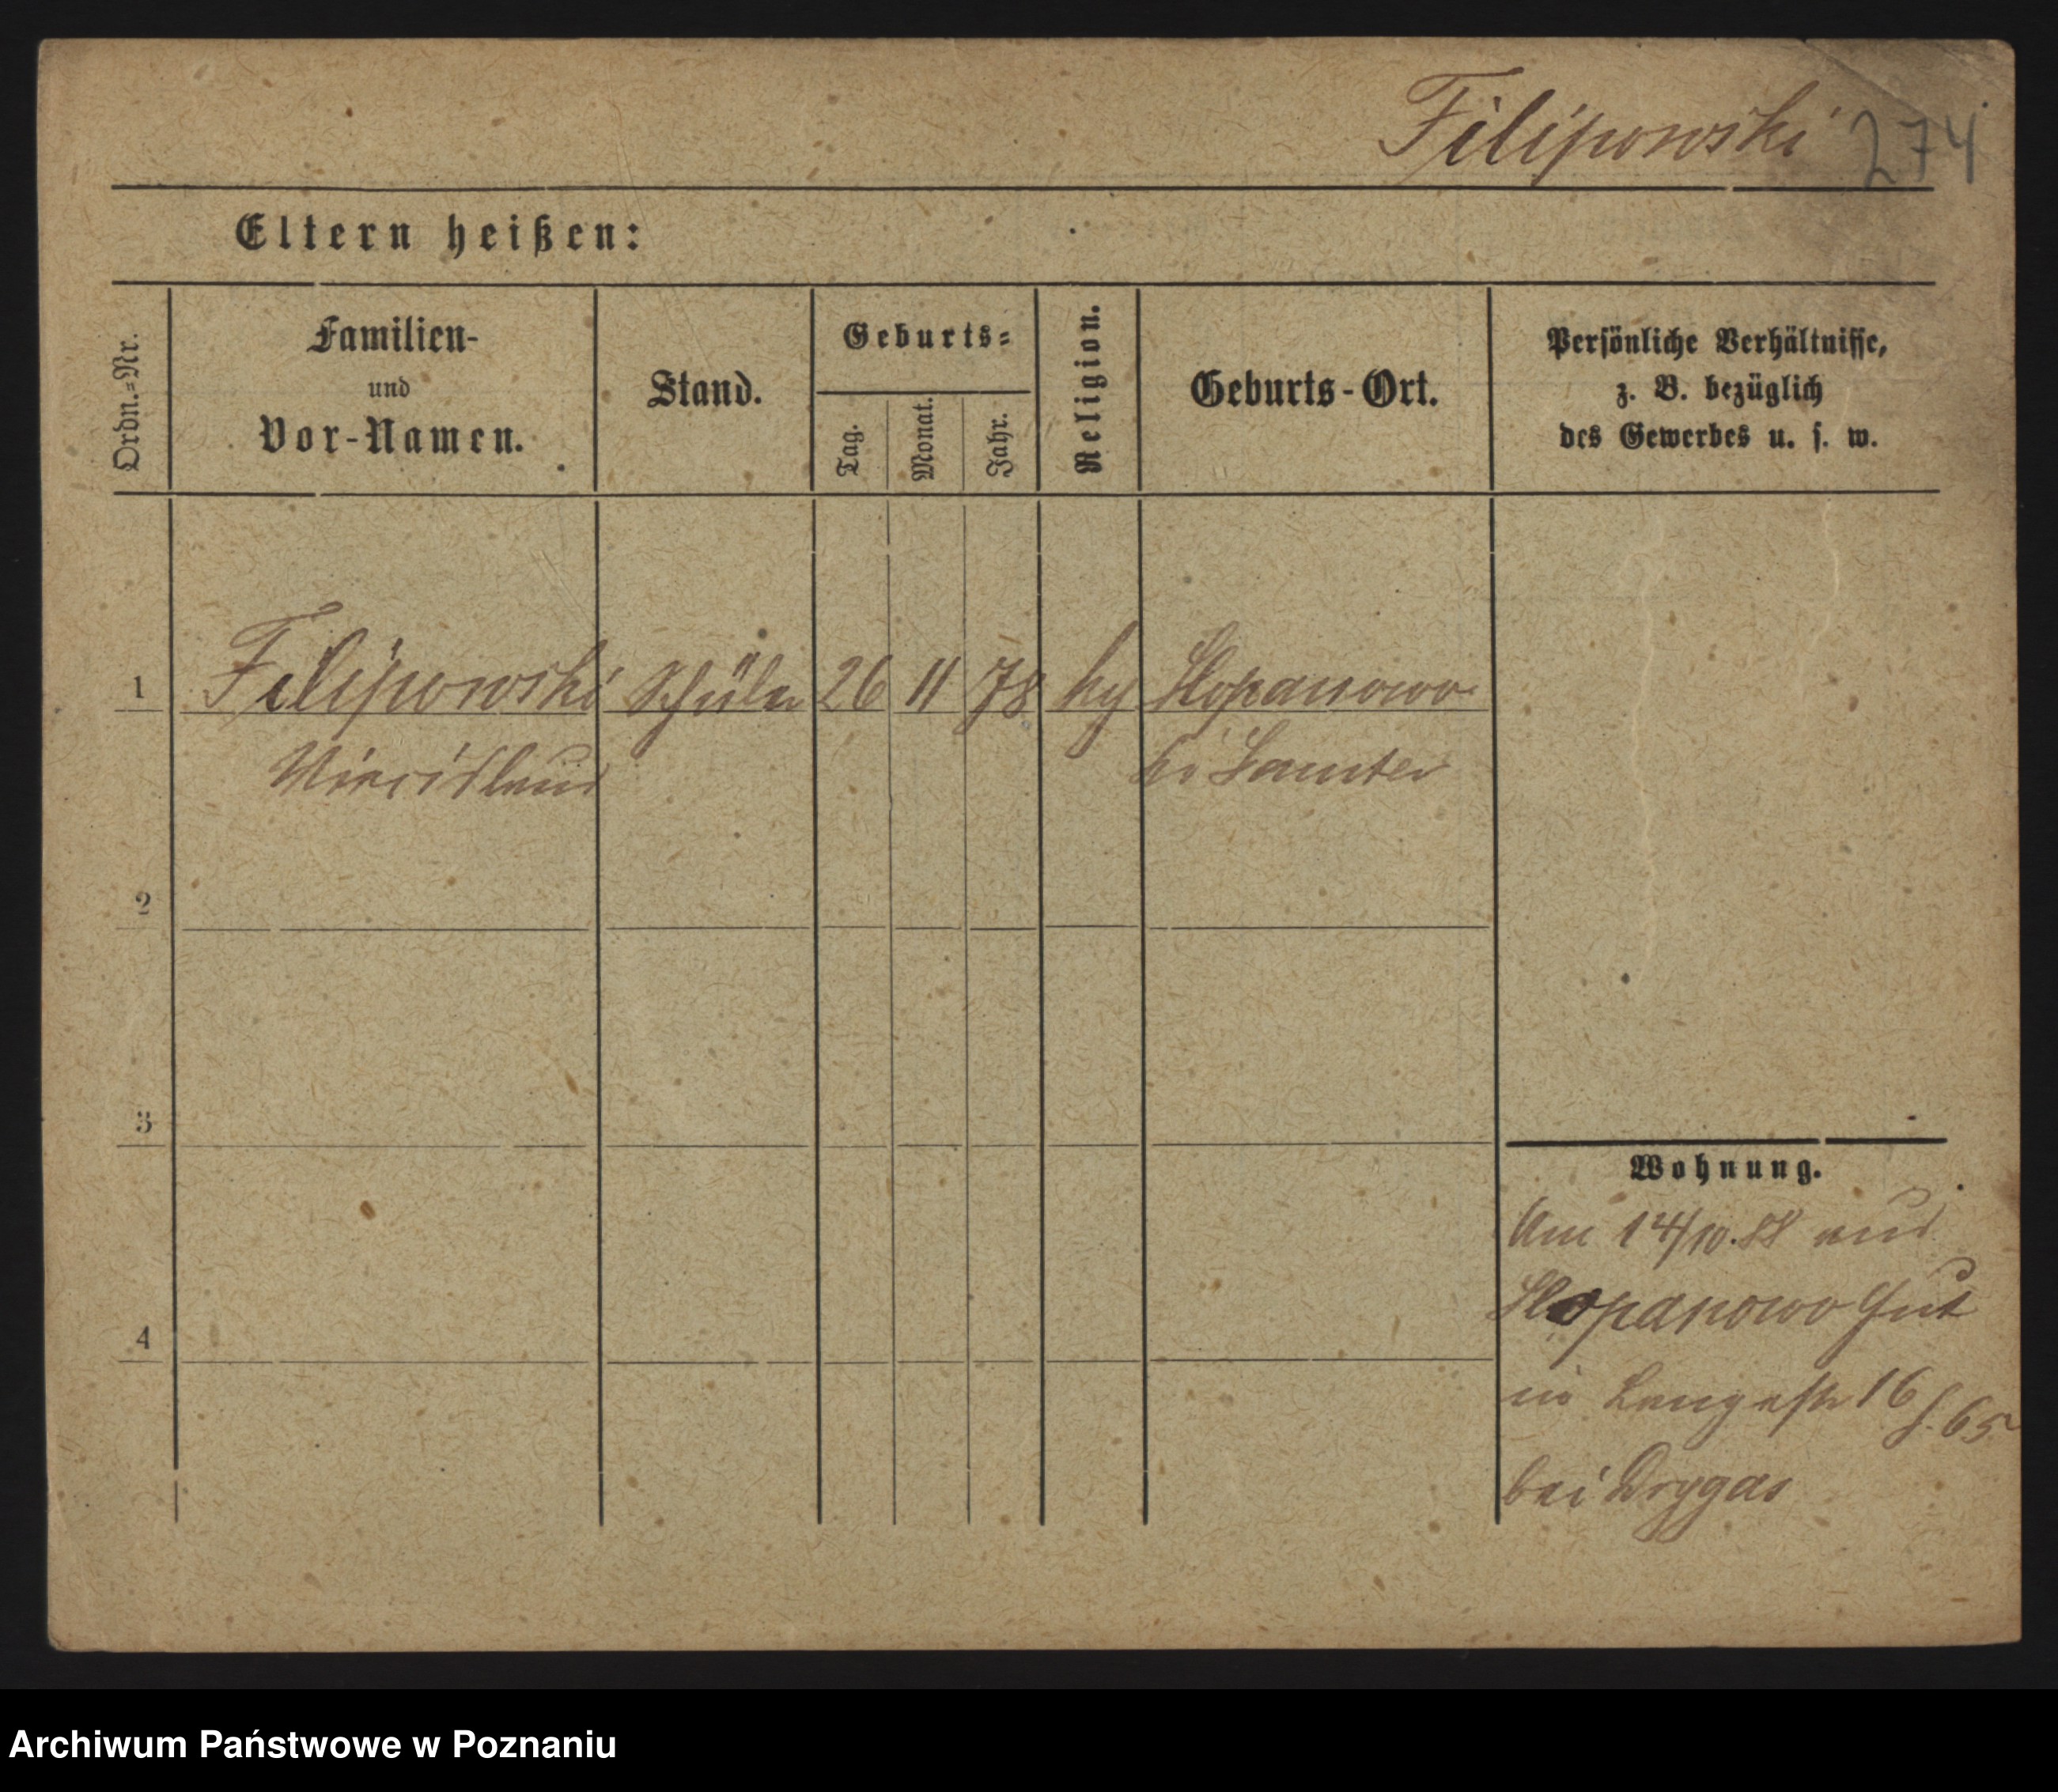 Filipowski 274
Eltern heißen:
Ordn.=Nr.
Familien-
und
Vor-Namen.
Stand.
Geburts=
Tag.
Monat.
Jahr.
Religion.
Geburts-Ort.
Persönliche Verhältnisse,
z. B. bezüglich
des Gewerbes u. s. w.
1 Filipowski Schüler 26 11 78 Slopanowo
bei Samter
2
3
4
Wohnung.
Am 14/10.88 aus
Slopanowo Gut
in Langestr 16
bei Drygas
Archiwum Państwowe w Poznaniu